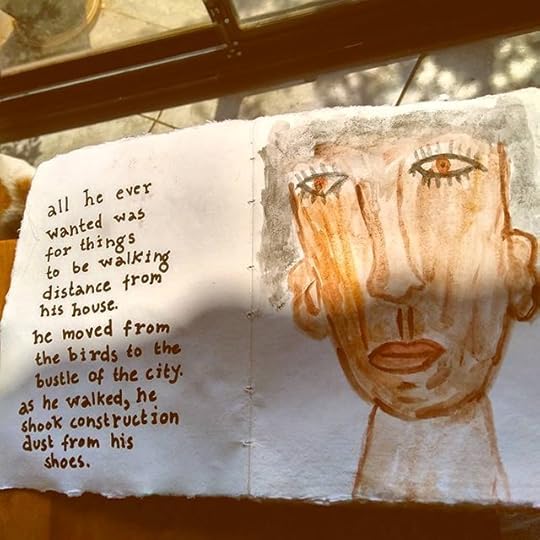 all he ever
wanted was
for things
to be walking
distance from
his house.
he moved from
the birds to the
bustle of the city.
as he walked, he
shook construction
dust from his
shoes.